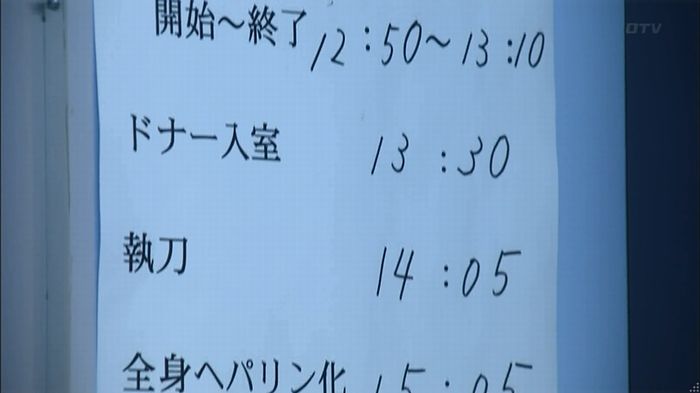 OTV
開始～終了 12:50～13:10
ドナー入室 13:30
執刀 14:05
全身ヘパリン化 15:05